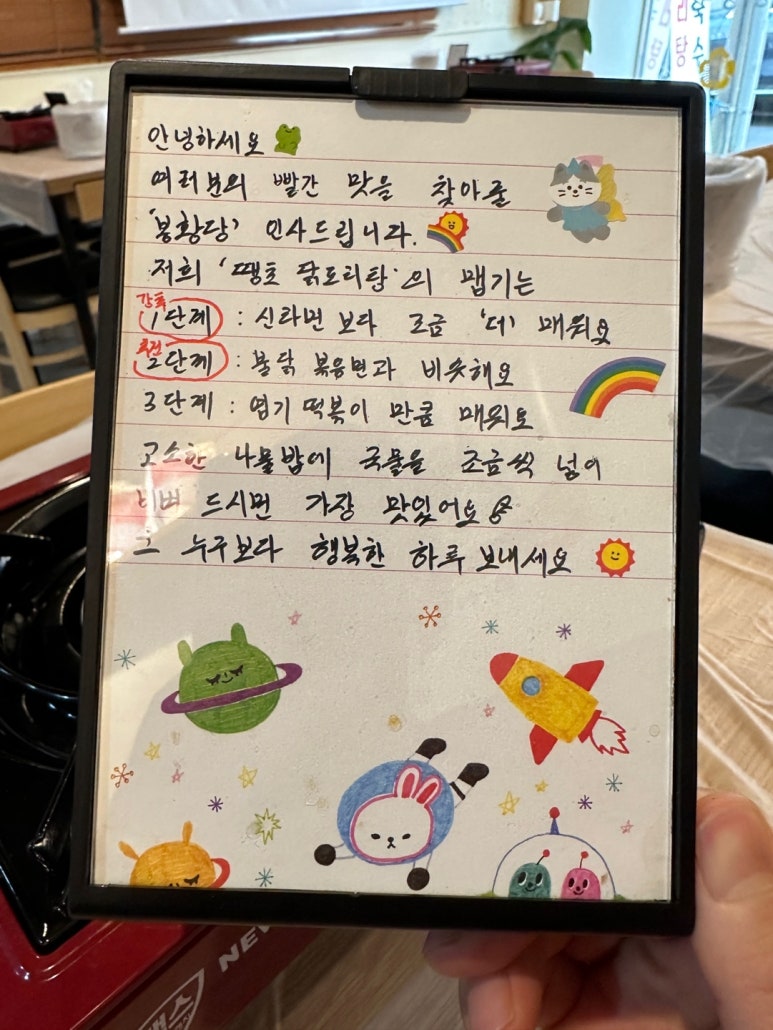 안녕하세요
여러분의 빨간 맛을 찾아줄
'봉황당' 인사드립니다.
저희 '땡초 닭도리탕'의 맵기는
강추
1단계 : 신라면 보다 조금 '더' 매워요
추천
2단계 : 불닭 볶음면과 비슷해요
3단계 : 엽기 떡볶이 만큼 매워요
고소한 나물밥에 국물을 조금씩 넣어
비벼 드시면 가장 맛있어요
그 누구보다 행복한 하루 보내세요
NEW
맥스